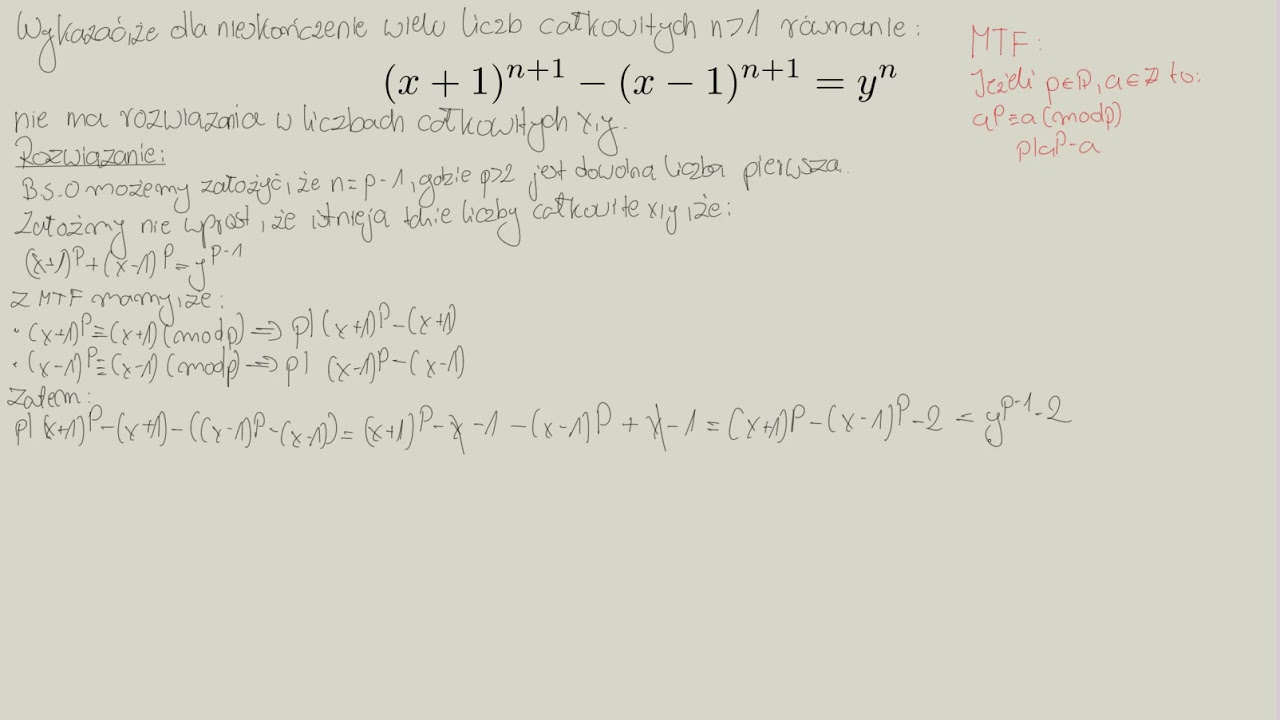 Wykazać, że dla nieskończenie wielu liczb całkowitych n>1 równanie:
(x + 1)^{n+1} − (x − 1)^{n+1} = y^n
nie ma rozwiązania w liczbach całkowitych x,y.
Rozwiązanie:
B.s.o możemy założyć, że n=p-1, gdzie p>2 jest dowolna liczba pierwsza.
Załóżmy nie wprost, że istnieją takie liczby całkowite x,y, że:
(x+1)^p+(x-1)^p=y^{p-1}
Z MTF mamy, że:
• (x+1)^p≡(x+1)(modp) ⟹ p|(x+1)^p-(x+1)
• (x-1)^p≡(x-1)(modp) ⟹ p| (x-1)^p-(x-1)
Zatem:
p|(x+1)^p-(x+1)-((x-1)^p-(x-1))=(x+1)^p-x-1-(x-1)^p+x-1=(x+1)^p-(x-1)^p-2=y^{p-1}-2
MTF:
Jeżeli p∈ℙ, a∈ℤ to:
a^p≡a(modp)
p|a^p-a